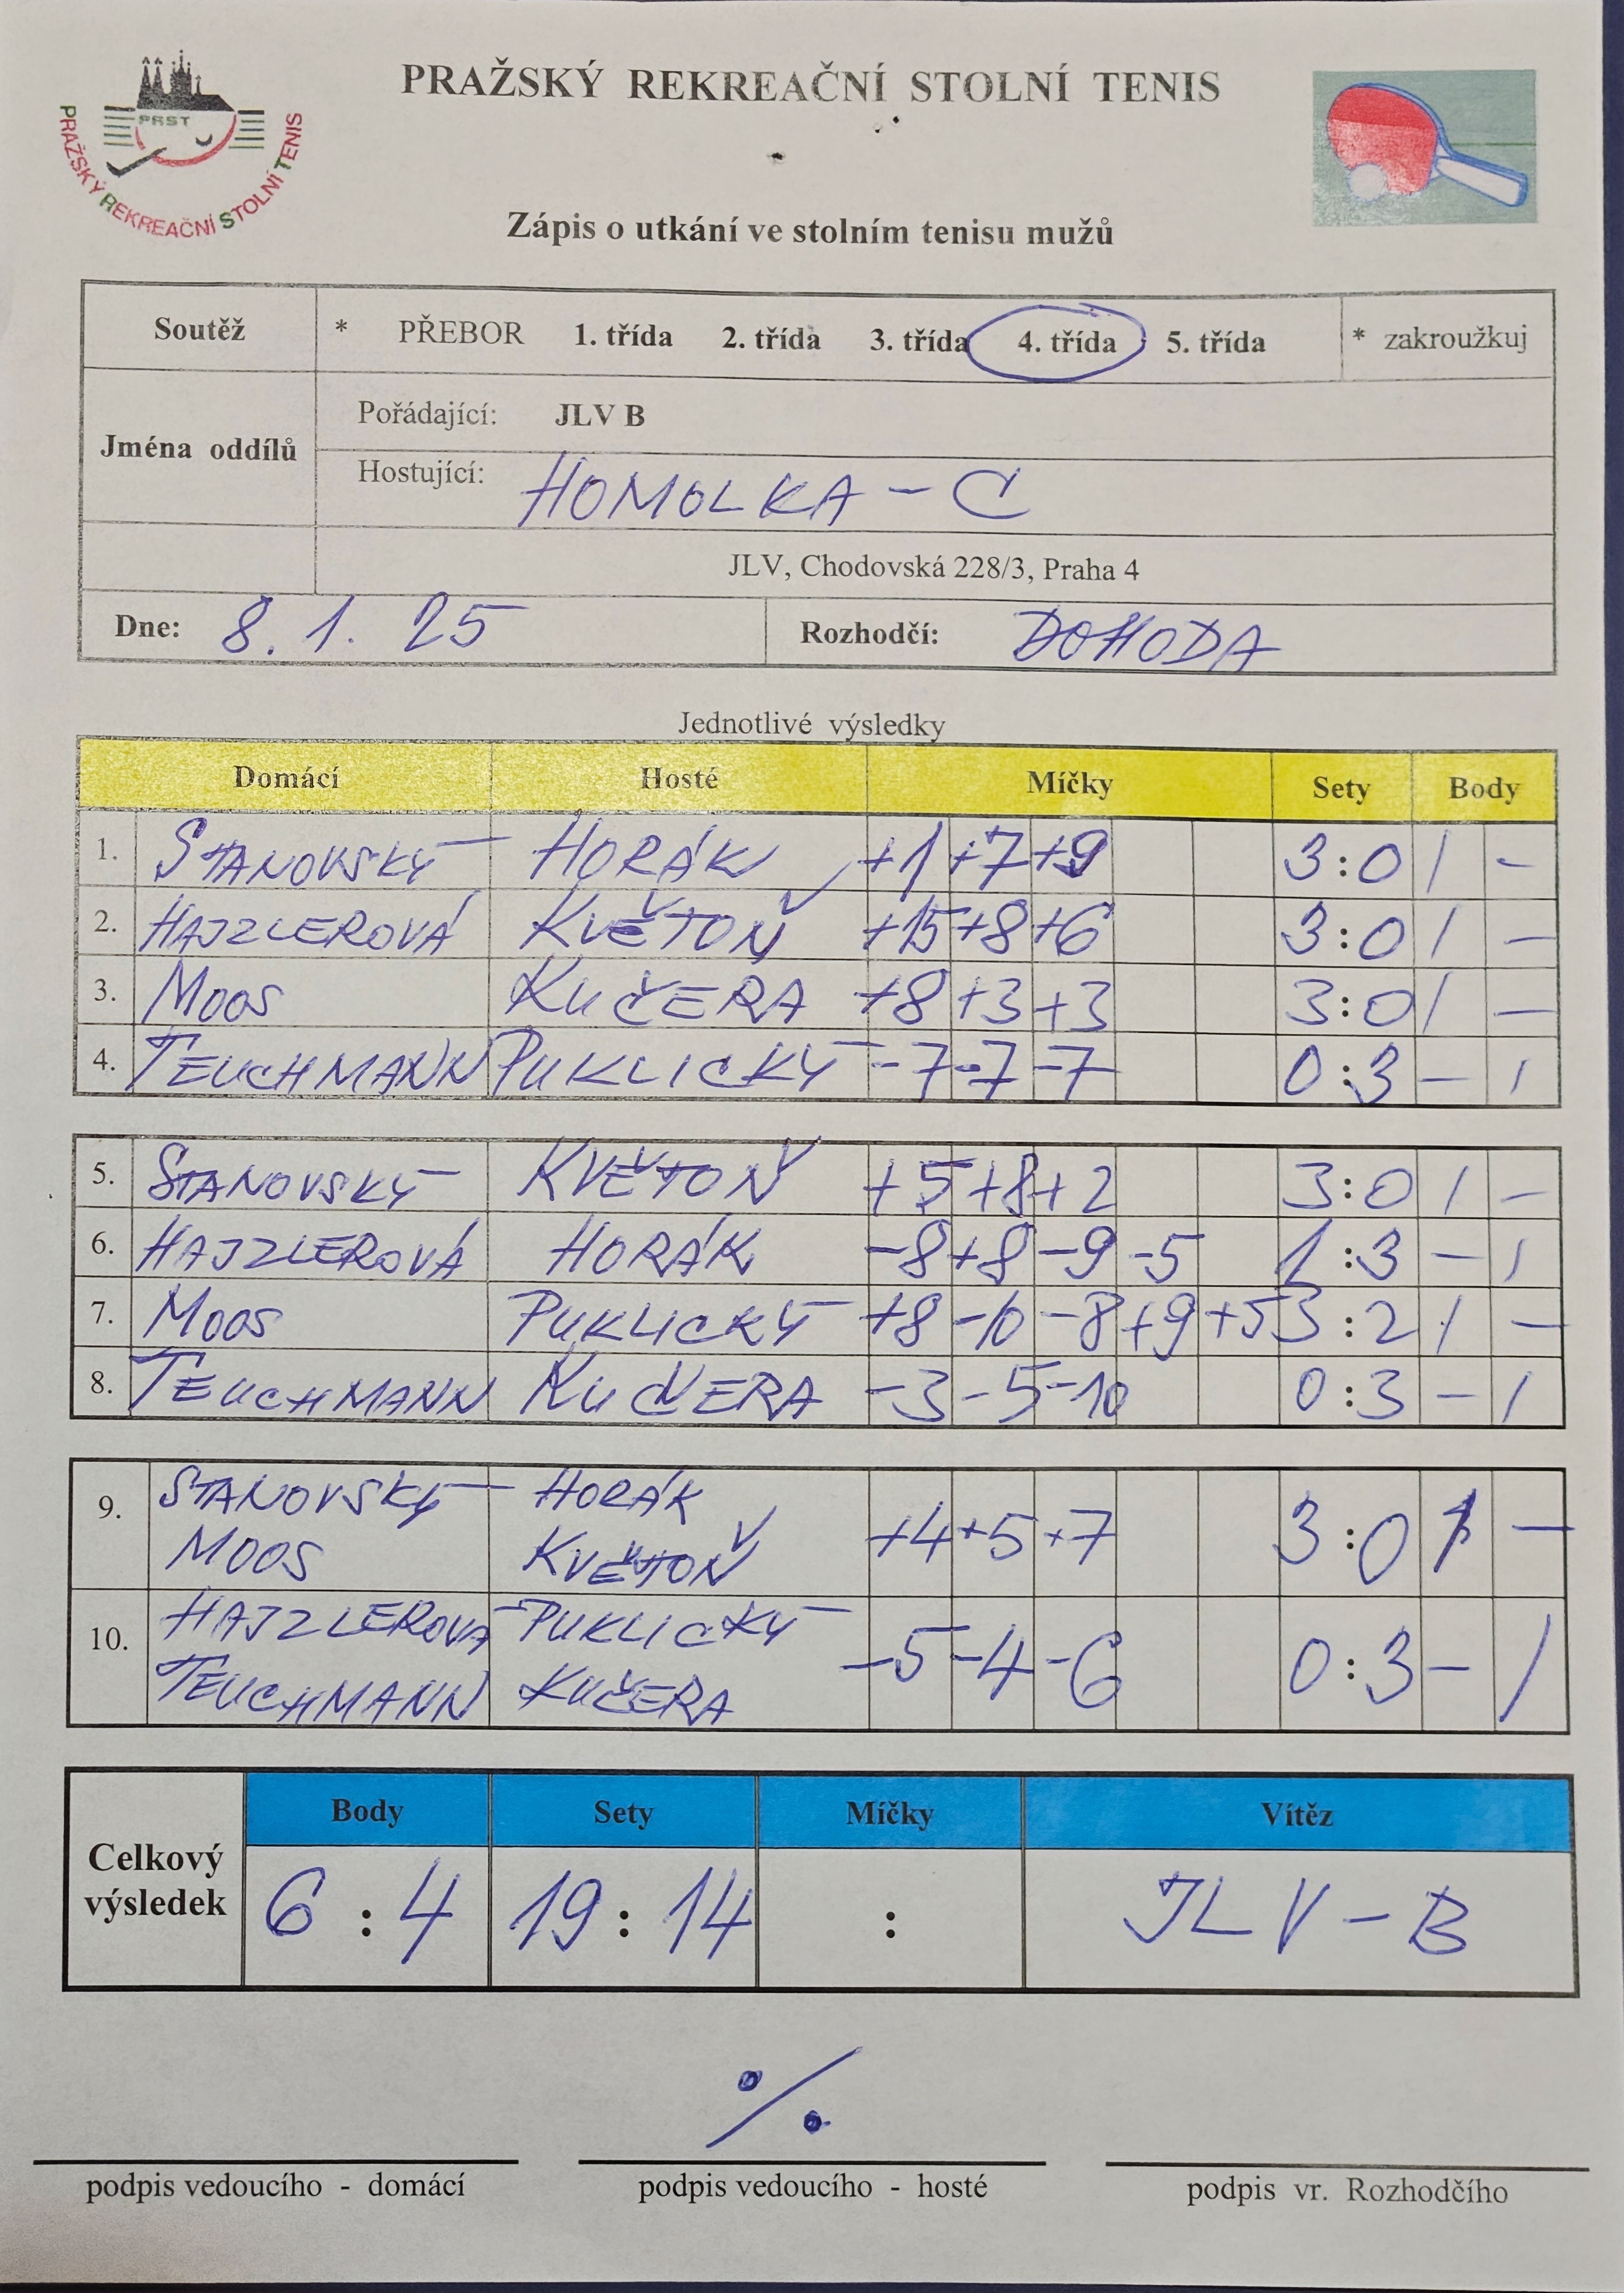 PRAŽSKÝ REKREAČNÍ STOLNÍ TENIS
PRST
PRAŽSKÝ REKREAČNÍ STOLNÍ TENIS
Zápis o utkání ve stolním tenisu mužů
Soutěž * PŘEBOR 1. třída 2. třída 3. třída 4. třída 5. třída * zakroužkuj
Jména oddílů
Pořádající: JLV B
Hostující: HOMOLKA - C
JLV, Chodovská 228/3, Praha 4
Dne: 8. 1. 25 Rozhodčí: DOHODA
Jednotlivé výsledky
Domácí Hosté Míčky Sety Body
1. STANOVSKÝ HORÁK +1 +7 +9 3:0 1 -
2. HAJZLEROVÁ KVĚTOŇ +15 +8 +6 3:0 1 -
3. MOOS KUČERA +8 +3 +3 3:0 1 -
4. TEUCHMANN PUKLICKÝ -7 -7 -7 0:3 - 1
5. STANOVSKÝ KVĚTOŇ +5 +8 +2 3:0 1 -
6. HAJZLEROVÁ HORÁK -8 +8 -9 -5 1:3 - 1
7. MOOS PUKLICKÝ +8 -10 -8 +9 +5 3:2 1 -
8. TEUCHMANN KUČERA -3 -5 -10 0:3 - 1
9. STANOVSKÝ HORÁK
MOOS KVĚTOŇ +4 +5 +7 3:0 1 -
10. HAJZLEROVÁ PUKLICKÝ
TEUCHMANN KUČERA -5 -4 -6 0:3 - 1
Body Sety Míčky Vítěz
Celkový výsledek 6 : 4 19 : 14 : JLV - B
%
podpis vedoucího - domácí podpis vedoucího - hosté podpis vr. Rozhodčího